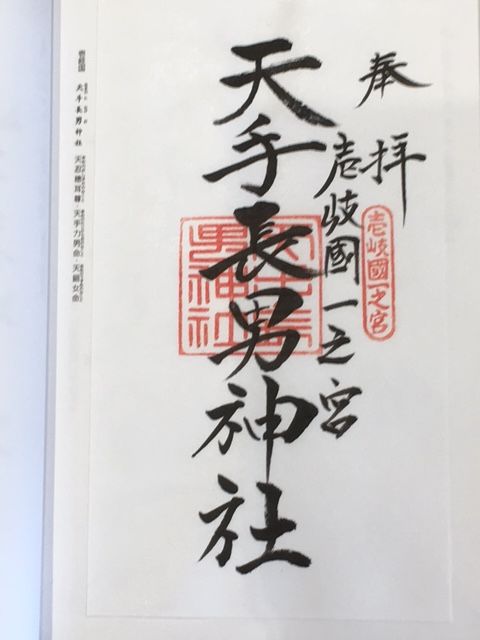 奉拝
壱岐國一之宮
壱岐國一之宮
天手長男神社
天手長男神社
壱岐国 天手長男神社 天忍穂耳尊・天手力男命・天鈿女命